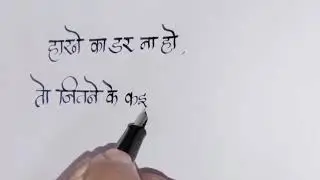 हारने का डर ना हो .
तो जितने के कइ